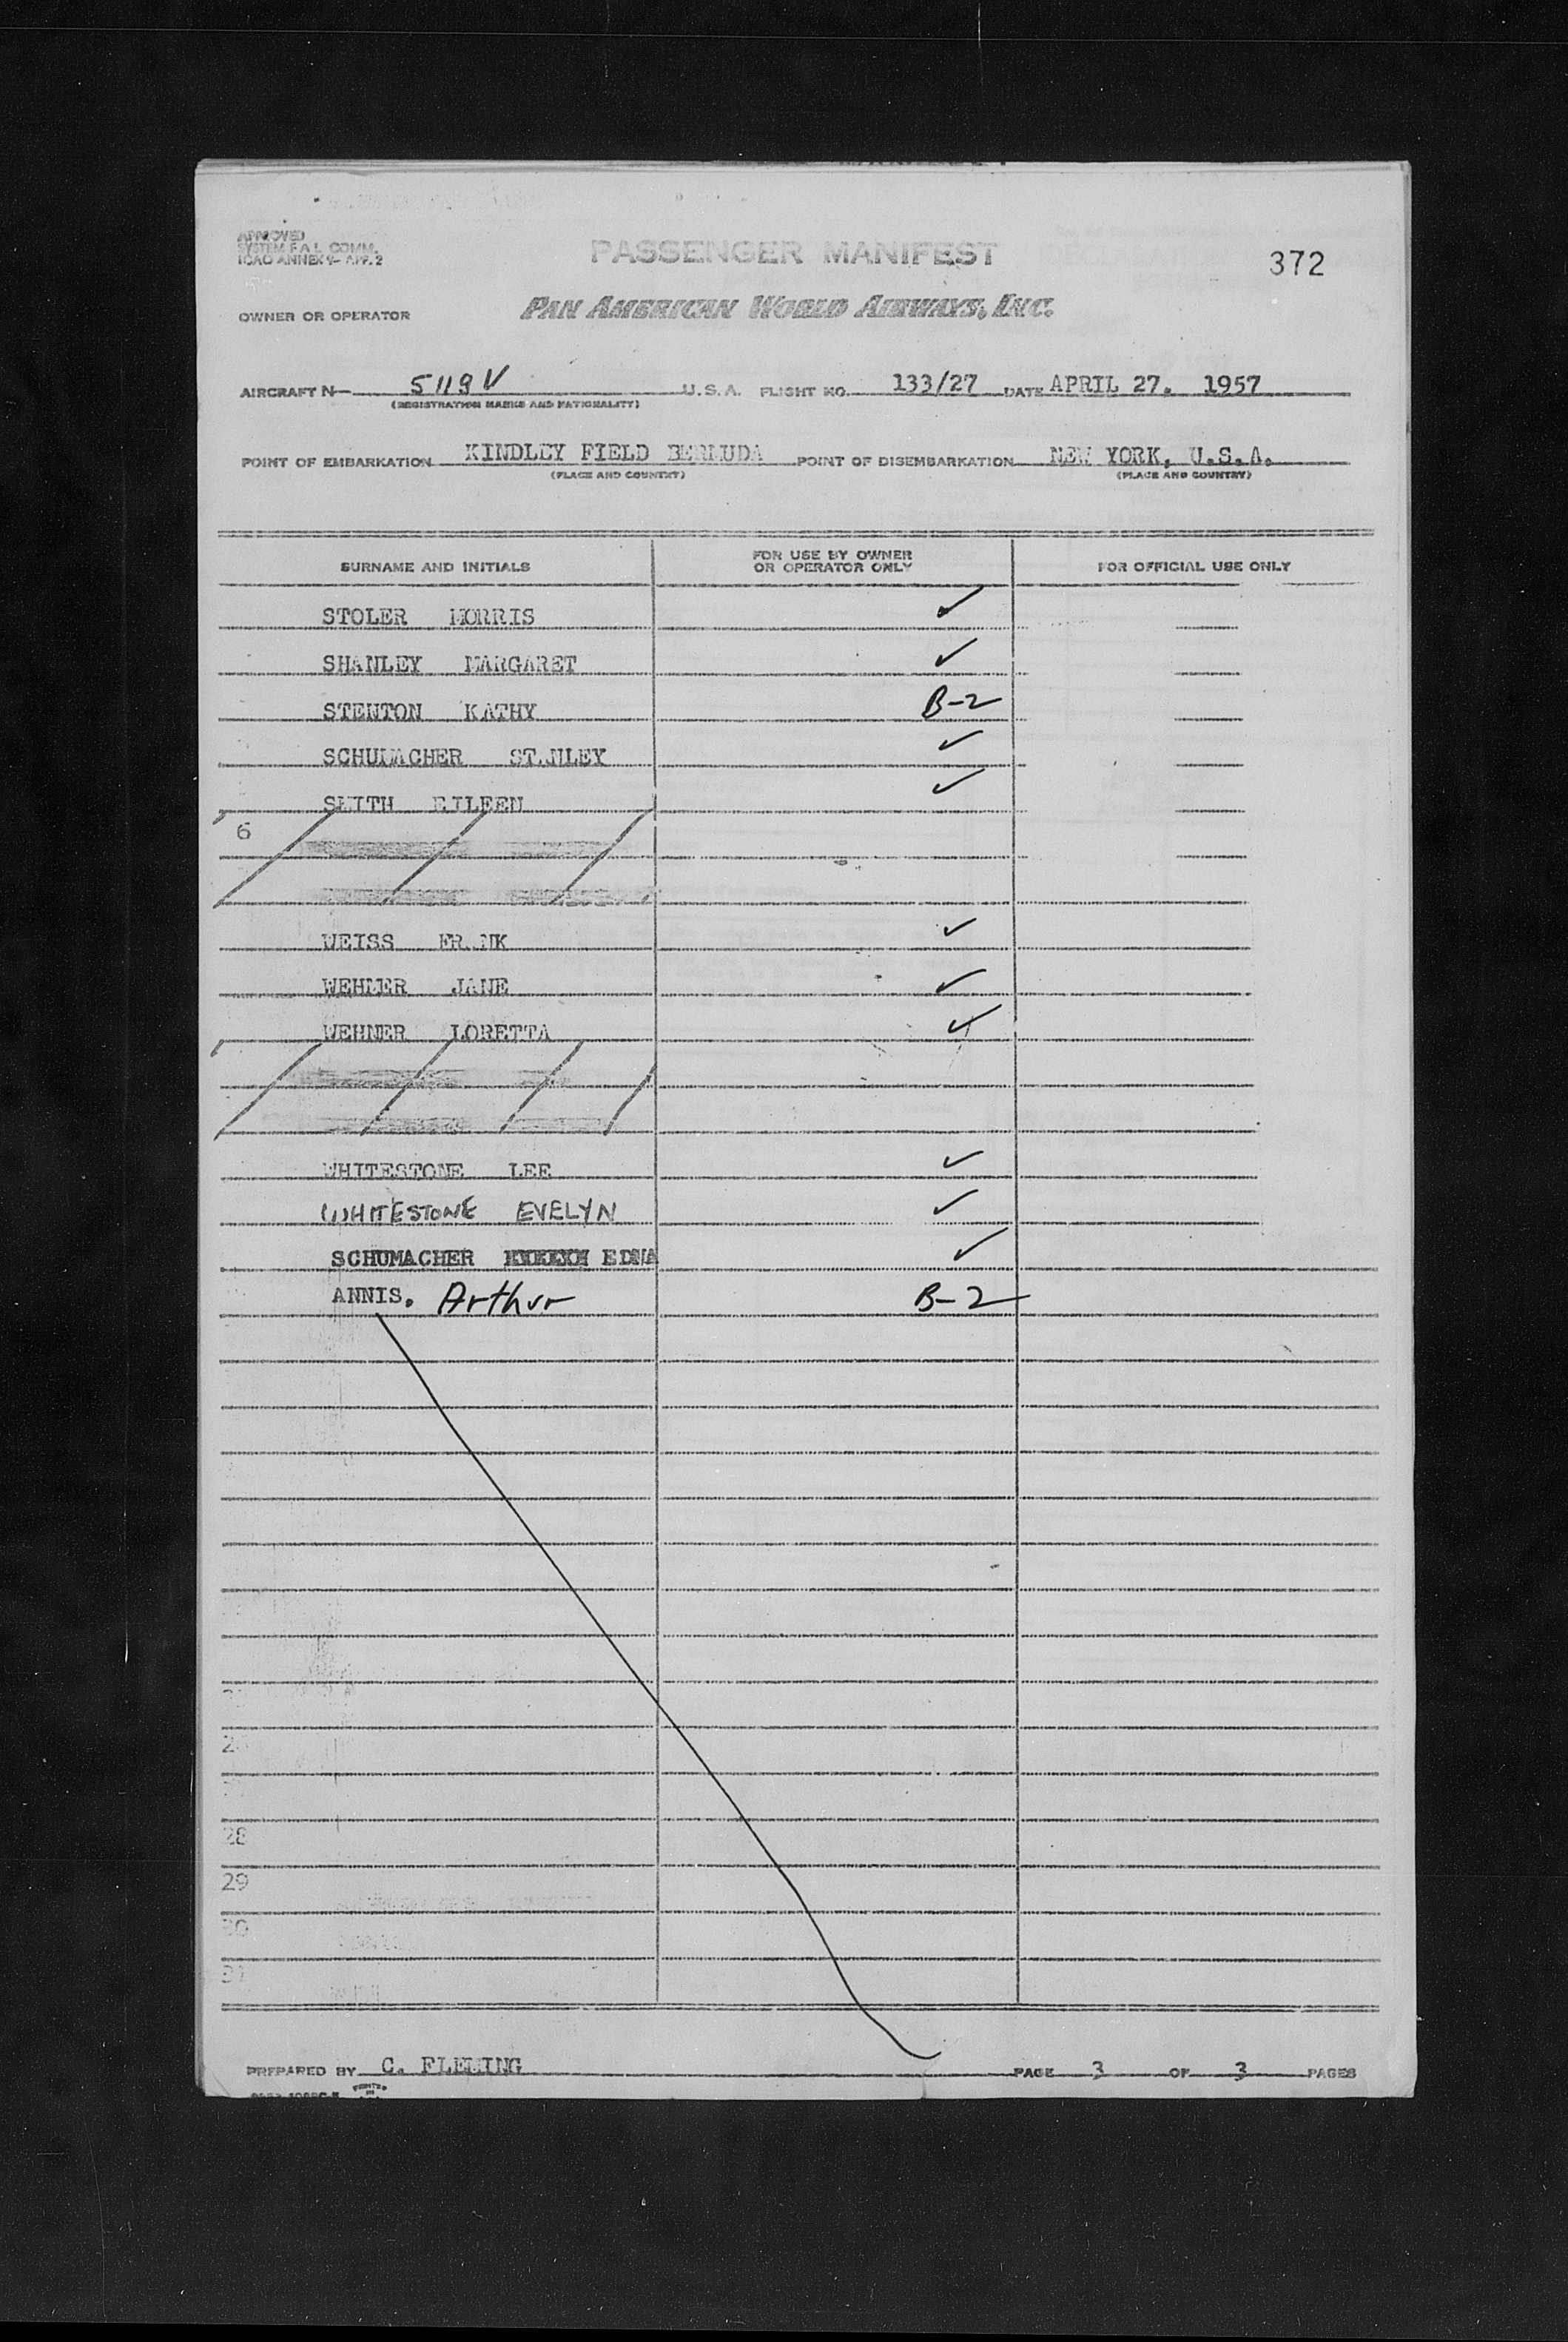 APPROVED
SYSTEM F A L COMM.
ICAO ANNEX 9- APP. 2
PASSENGER MANIFEST
372
OWNER OR OPERATOR PAN AMERICAN WORLD AIRWAYS, INC.
AIRCRAFT N— 5119V U.S.A. FLIGHT NO. 133/27 DATE APRIL 27. 1957
(REGISTRATION MARKS AND NATIONALITY)
POINT OF EMBARKATION KINDLEY FIELD BERMUDA POINT OF DISEMBARKATION NEW YORK, U.S.A.
(PLACE AND COUNTRY) (PLACE AND COUNTRY)
SURNAME AND INITIALS FOR USE BY OWNER OR OPERATOR ONLY FOR OFFICIAL USE ONLY
STOLER MORRIS ✓
SHANLEY MARGARET ✓
STENTON KATHY B-2
SCHUMACHER STANLEY ✓
SMITH EILEEN ✓
6
WEISS FRANK ✓
WEHMER JANE ✓
WEHNER LORETTA ✓
WHITESTONE LEE ✓
WHITESTONE EVELYN ✓
SCHUMACHER EDNA ✓
ANNIS. Arthur B-2
28
29
30
31
PREPARED BY C. FLEMING PAGE 3 OF 3 PAGES